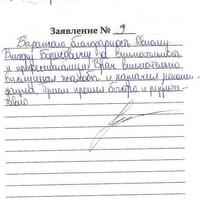 Заявление № 9
Выражаю благодарность
Виктору Борисовичу за внимательность
и профессионализм. Врач внимательно
выслушал жалобы и назначил
Прием прошел быстро и